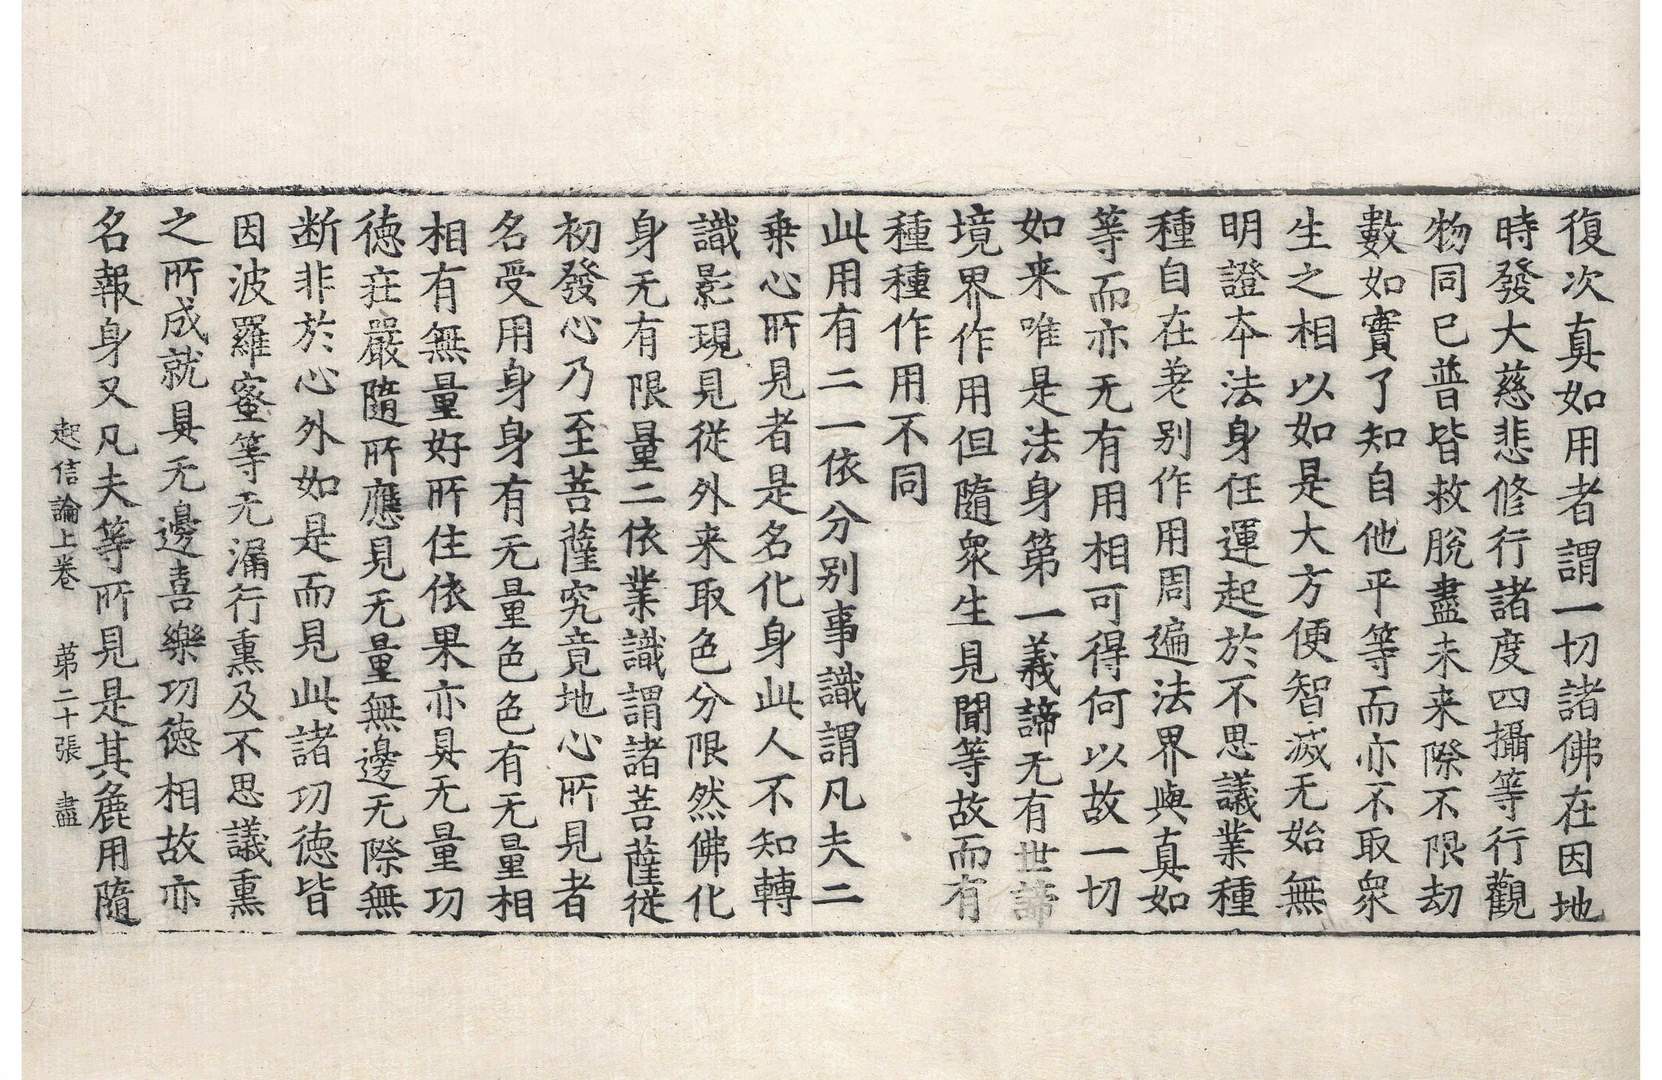 復次真如用者謂一切諸佛在因地
時發大慈悲修行諸度四攝等行觀
物同已普皆救脫盡未来際不限劫
數如實了知自他平等而亦不取衆
生之相以如是大方便智滅无始無
明證夲法身任運起於不思議業種
種自在差别作用周遍法界與真如
等而亦无有用相可得何以故一切
如来唯是法身第一義諦无有世諦
境界作用但隨衆生見聞等故而有
種種作用不同
此用有二一依分别事識謂凡夫二
乗心所見者是名化身此人不知轉
識影現見從外来取色分限然佛化
身无有限量二依業識謂諸菩薩從
初發心乃至菩薩究竟地心所見者
名受用身身有无量色色有无量相
相有無量好所住依果亦具无量功
德莊嚴隨所應見无量無邊无際無
断非於心外如是而見此諸功德皆
因波羅蜜等无漏行熏及不思議熏
之所成就具无邊喜樂功德相故亦
名報身又凡夫等所見是其麁用隨
起信論上卷 苐二十張 盡